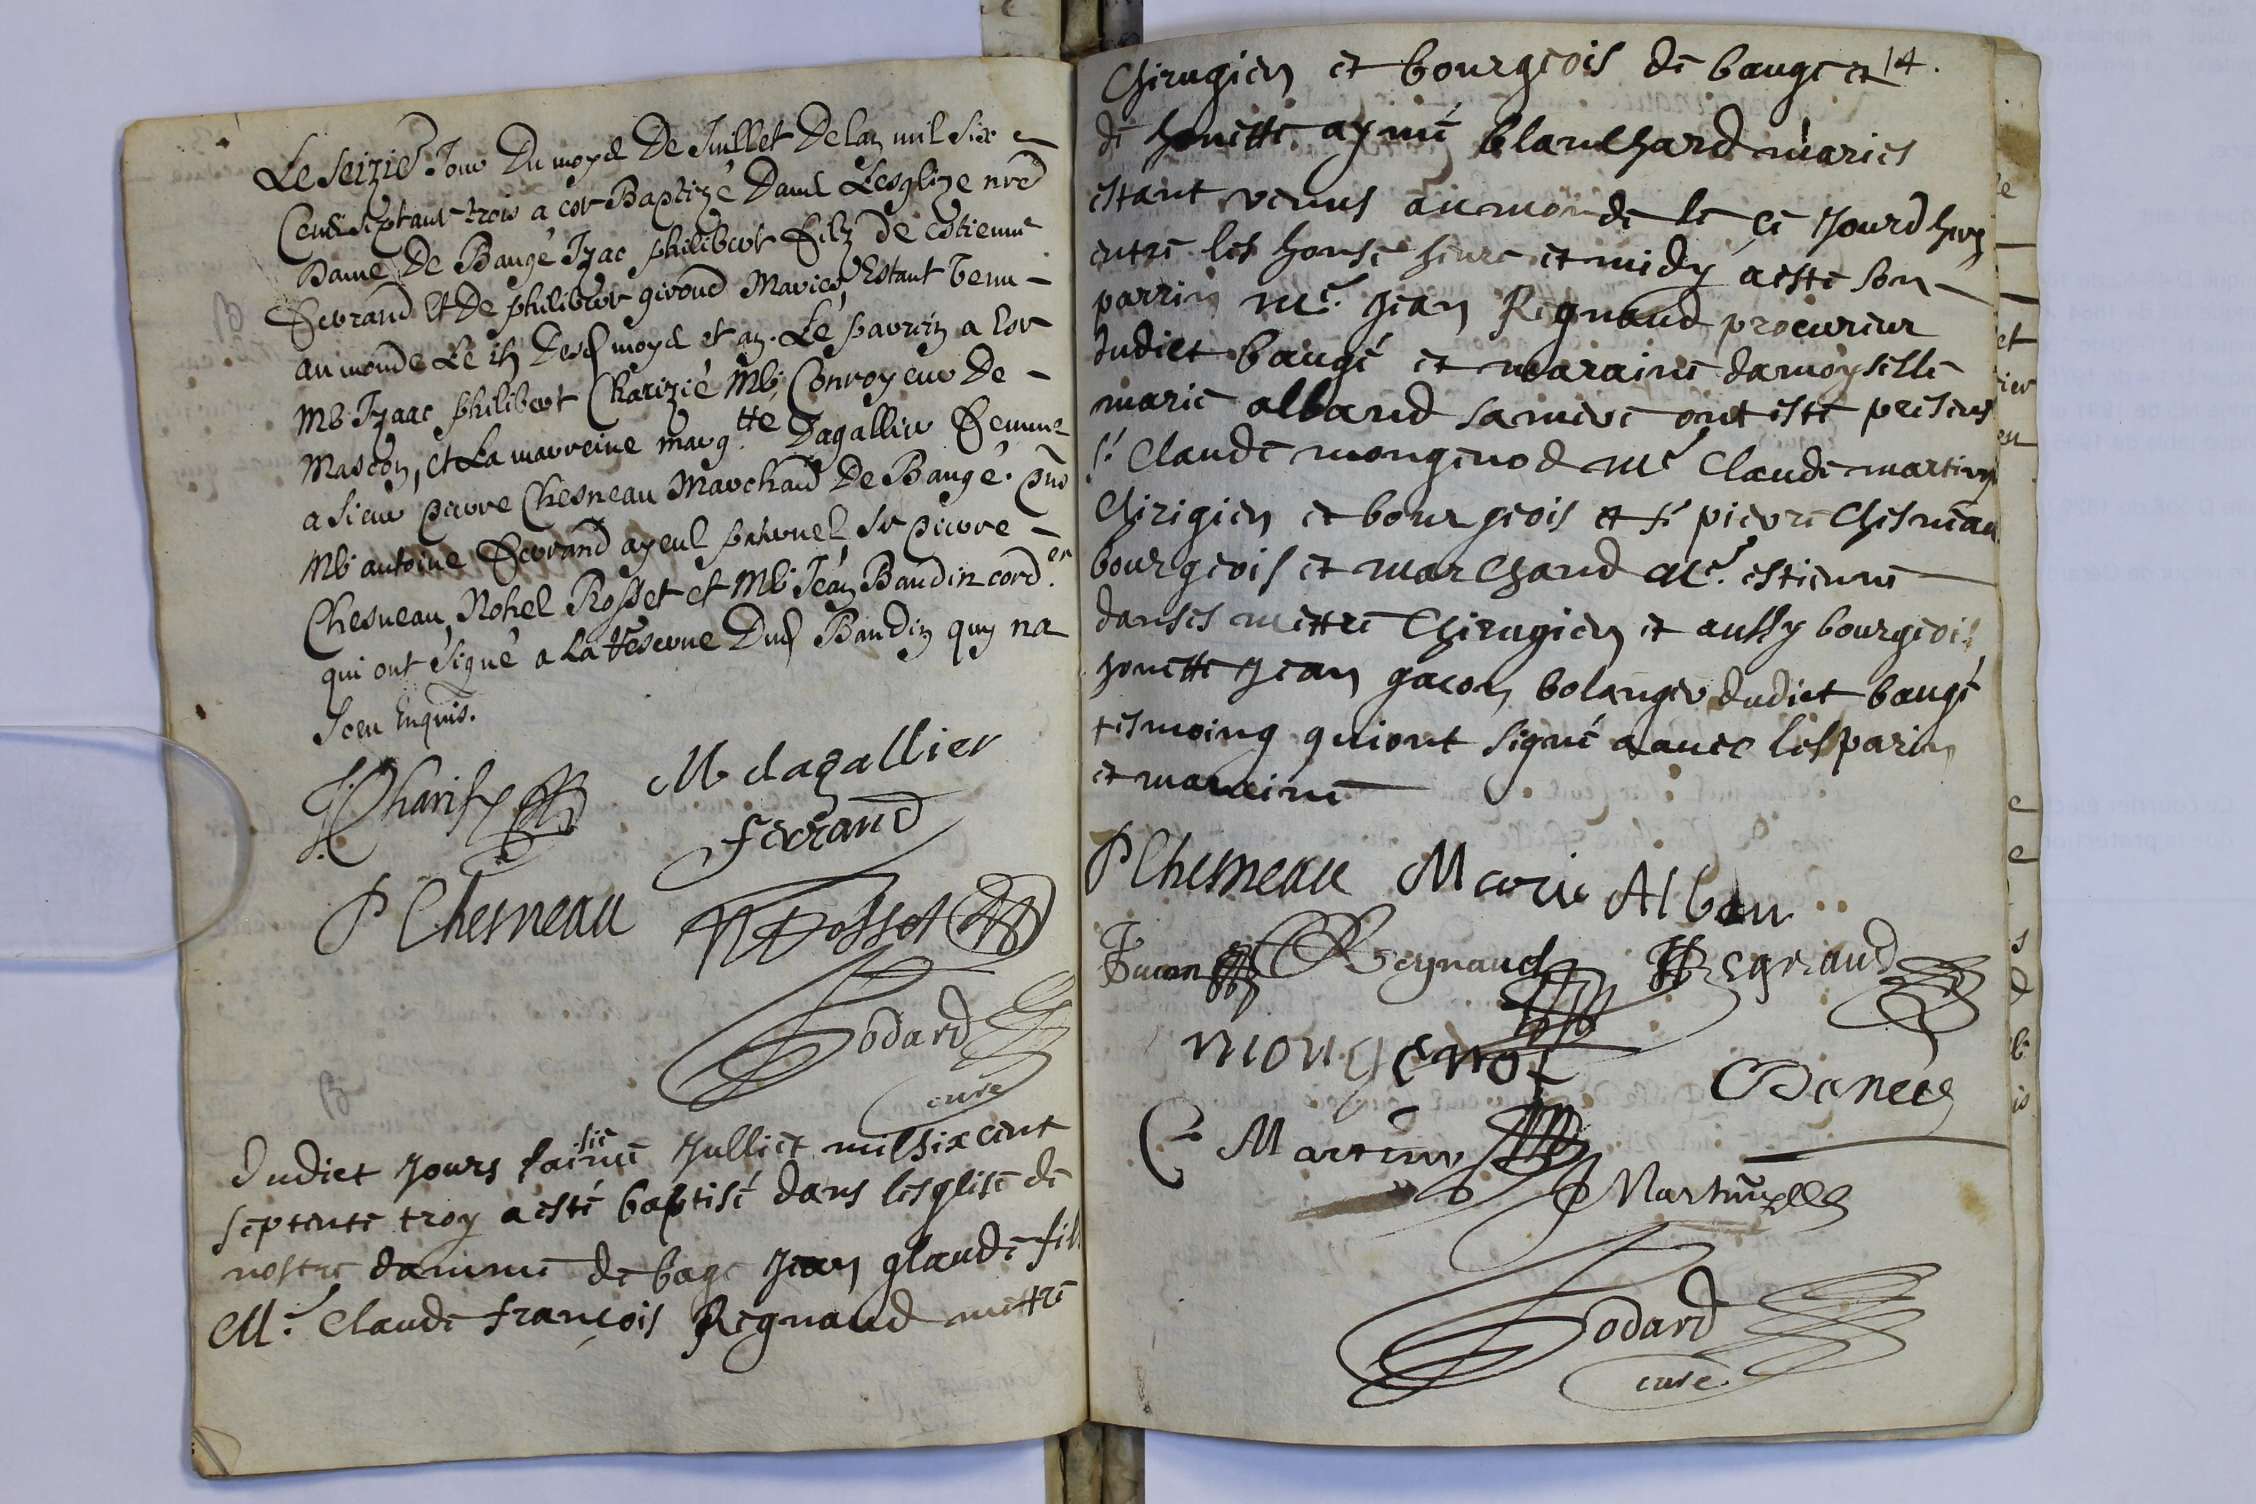 Le seizie Jour Du moys De Juillet De lan mil six
Cents septante trois a este Baptizé Dans Lesglize nre
Dame De Baugé Izac philibert filz de estienne
Ferrand Et De philiberte giroud Mariés Estant venu
au monde Le Desd moys et an. Le parrin a este
Me Izaac philibert Charizié Me Conroyeur De
Mascon, et La marreine marg.tte Dagallier femme
a sieur pierre Chesneau Marchand De Baugé. pns
Me antoine Ferrand ayeul paternel sr pierre
Chesneau, Nohel Rosset et Me Jean Baudin cord.er
qui ont signé a La reserve Dud Baudin quy na
sceu Enquis.
M dagallier
ferrand
P Chesneau
N Rosset
Godard
curé
B
dudict jours saisie julliet mil six cent
septente troy a esté baptisé dans lesglise de
nostre damme de bage jean glaude fils
Me Claude françois Regnaud mettre
14.
Chirugien et bourgeois de bauge et
de honette aymé blanchard maries
estant venus au monde le ce jourdhuy
entre les honse heure et midy a este son
parrin Me. jean Regnaud procureur
dudict baugé et maraine damoyselle
marie alband sa mere ont este presens
sr Claude mongenod Me Claude martin
Chirigien et bourgeois et sr pierre Chesneau
bourgeois et marchand Me. estienne
danses mettre Chirugien et aussy bourgeois
honette jean gacon bolanger dudict baugé
tesmoing qui ont signé avec les parin
et maraine
P Chesneau Marie Alban
Gacon Regnaud Regnaud
mongenot
C Martin
Godard
curé